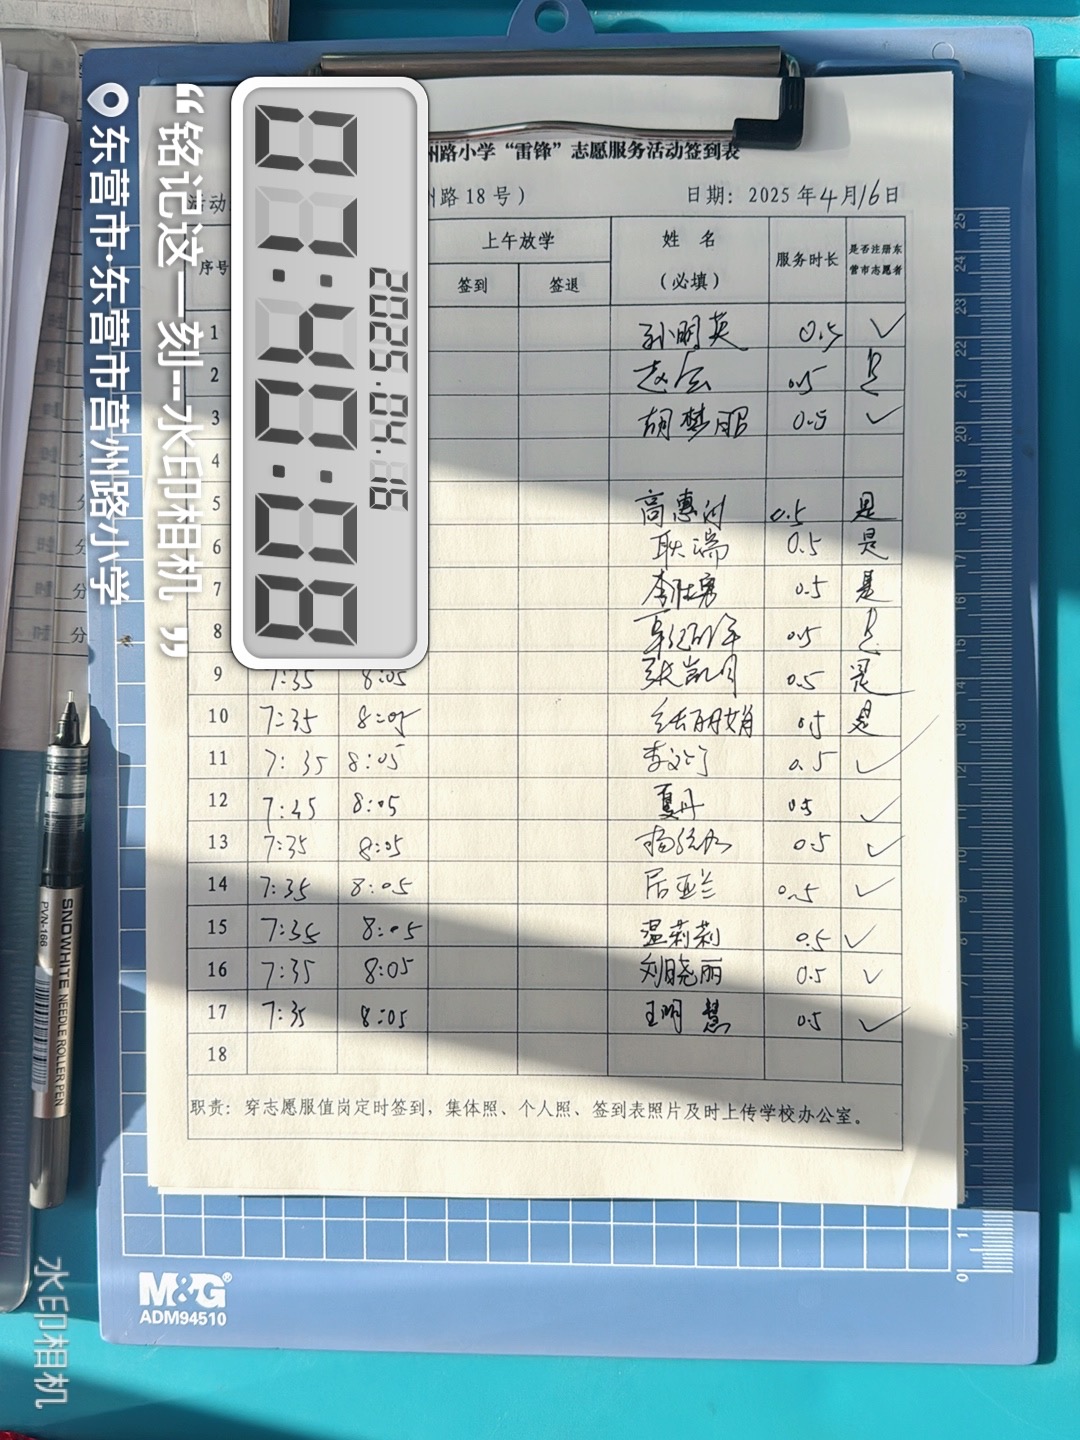 州路小学“雷锋”志愿服务活动签到表
活动 州路 18 号） 日期：2025 年 4 月 16 日
序号 上午放学 姓 名 （必填） 服务时长 是否注册东营市志愿者
签到 签退
1 孙明英 0.5 ✓
2 0.5
3 胡梦 0.5 ✓
4
5 高惠 0.5 是
6 耿瑞 0.5 是
7 李 0.5 是
8 0.5
9 7:35 8:05 张凯月 0.5 是
10 7:35 8:05 0.5 是
11 7:35 8:05 李 0.5 ✓
12 7:45 8:05 夏丹 0.5 ✓
13 7:35 8:05 杨 0.5 ✓
14 7:35 8:05 0.5 ✓
15 7:35 8:05 温莉莉 0.5 ✓
16 7:35 8:05 刘晓丽 0.5 ✓
17 7:35 8:05 王明慧 0.5 ✓
18
职责：穿志愿服值岗定时签到，集体照、个人照、签到表照片及时上传学校办公室。
2025.04.16
“铭记这一刻--水印相机”
东营市·东营市营州路小学
水印相机
M&G®
ADM94510
SNOWHITE NEEDLE ROLLER PEN
PVN-166